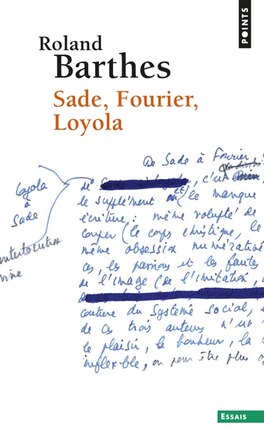 POINTS
Roland
Barthes
Sade, Fourier,
Loyola
De Sade à Fourier,
de c'
le supplément le manque
Loyola
à
Sade
écriture : même volupté de
couper (le corps christique, le
même obsession numérati
ces, les passions et les fautes
de l'image (de l'imitation,
couture du système social,
de ces trois auteurs n'
le plaisir, le bonheur, la
inflexible, on peut être plus
ESSAIS